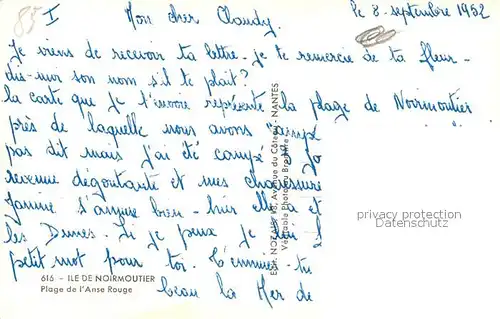 85
I Mon cher Claudy. le 8. septembre 1952
Je viens de recevoir ta lettre - je te remercie de ta fleur -
dis-moi son nom s'il te plait?
la carte que je t'envoie représente la plage de Noirmoutier
près de laquelle nous avons campé
pas dit mais j'ai été campé
revenue dégoutante et mes chaussure
Janine s'amuse bien - hier elle a et
les Dunes. Si je peux je
petit mot pour toi. T'ennuies-tu
beau la Mer de
616 - ILE DE NOIRMOUTIER
Plage de l'Anse Rouge
Edit. NOZAIS, 18, Avenue du Côteau - NANTES
Véritable Photo au Bromure
privacy protection
Datenschutz